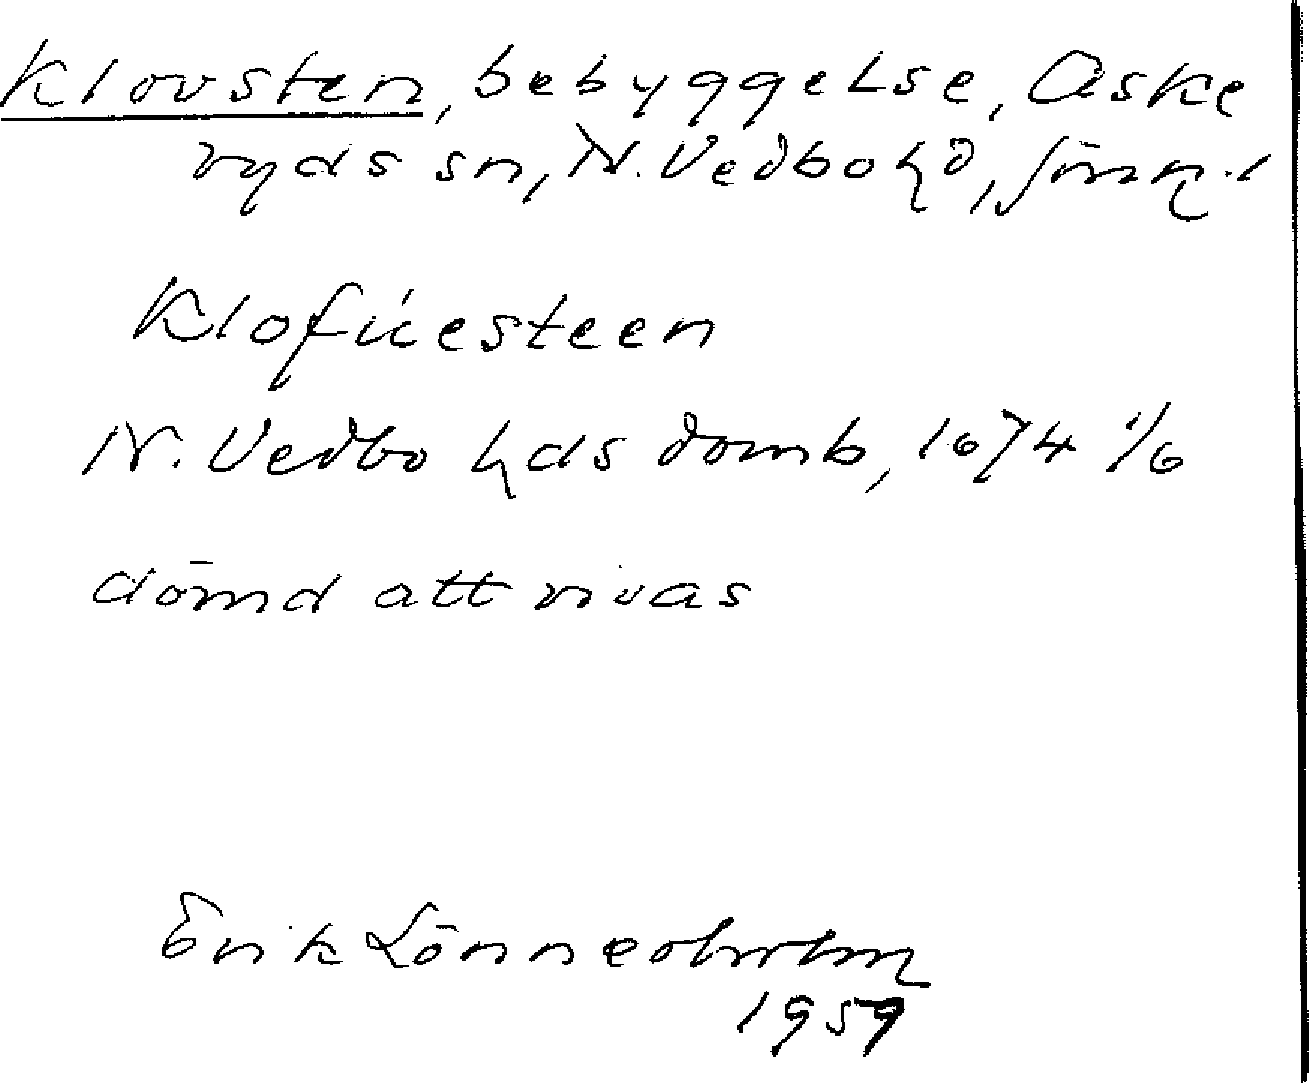 Klovsten, bebyggelse, Aske
ryds sn, N. Vedbo hd, Jönk. l
Klofuesteen
N. Vedbo hds domb, 1674 1/6
dömd att rivas
Erik Lönnerholm
1959